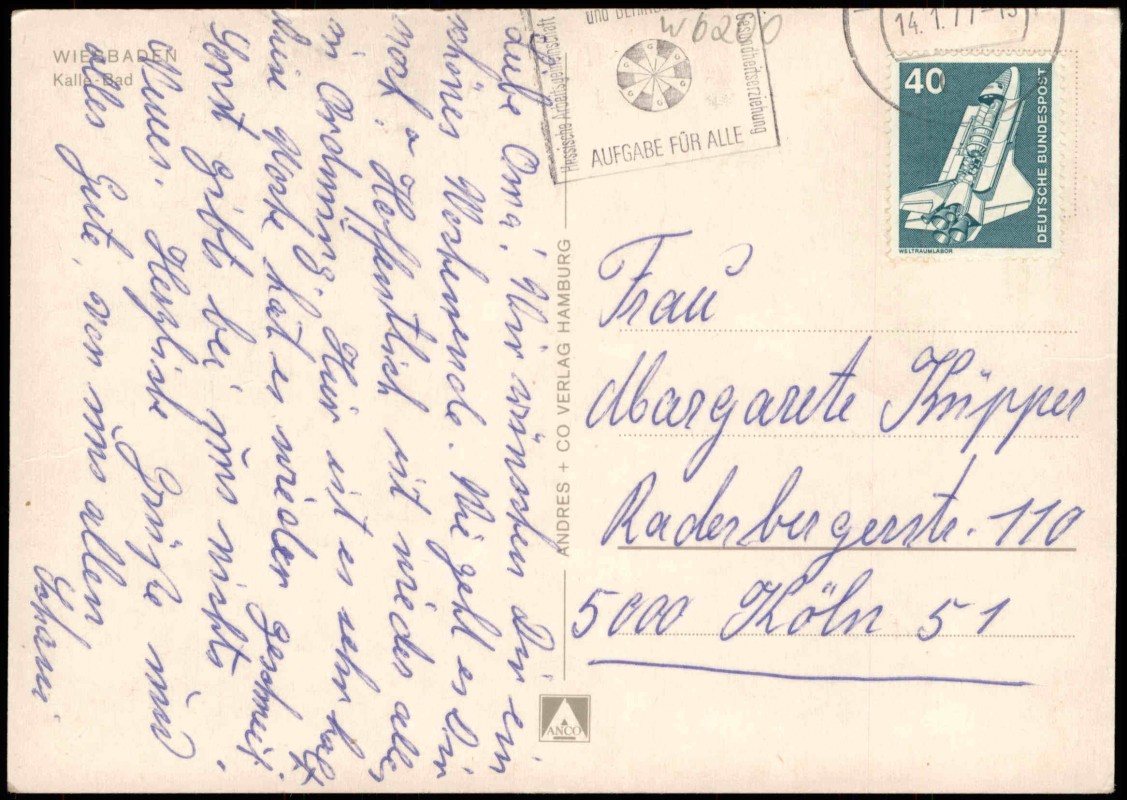 WIESBADEN
Kalle-Bad
Liebe Oma, Wir wünschen Dir ein
schönes Wochenende. Wie geht es Dir
noch? Hoffentlich ist wieder alles
in Ordnung. Hier ist es sehr kalt
diese Woche hat es wieder geschneit.
Sonst gibts bei uns nichts
Neues. Herzliche Grüße und
alles Gute, von uns allen
ANDRES + CO VERLAG HAMBURG
ANCO
Hessische Arbeitsgemeinschaft
Gesundheitserziehung
AUFGABE FÜR ALLE
W6200
14.1.77-15
40
DEUTSCHE BUNDESPOST
WELTRAUMLABOR
Frau
Margarete Küpper
Raderbergerstr. 110
5000 Köln 51